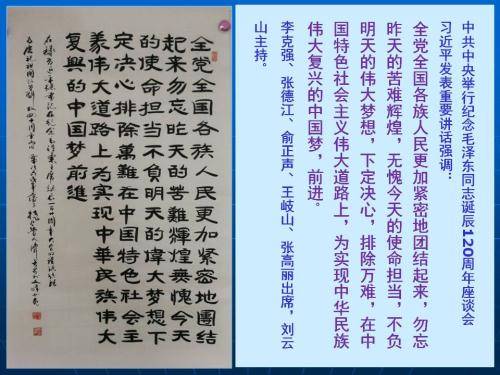 中共中央举行纪念毛泽东同志诞辰120周年座谈会
习近平发表重要讲话强调：
全党全国各族人民更加紧密地团结起来，勿忘
昨天的苦难辉煌，无愧今天的使命担当，不负
明天的伟大梦想，下定决心，排除万难，在中
国特色社会主义伟大道路上，为实现中华民族
伟大复兴的中国梦，前进。
李克强、张德江、俞正声、王岐山、张高丽出席，刘云
山主持。
全党全国各族人民更加紧密地團结
起来勿忘昨天的苦難輝煌無愧今天
的使命担当不負明天的偉大梦想下
定决心排除萬難在中国特色社会主
義偉大道路上为实现中華民族偉大
復興的中国梦前進